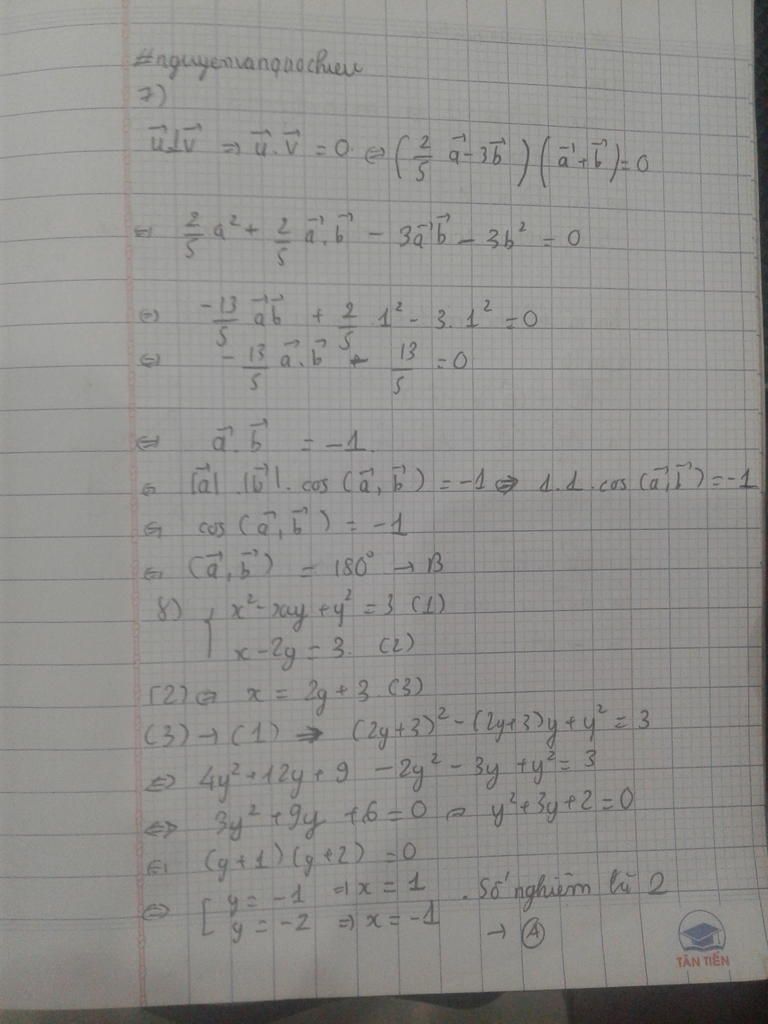 #nguyenvanquochieu
7)
u⃗⊥v⃗ ⇒ u⃗.v⃗ = 0 ⇔ (2/5 a⃗ - 3b⃗)(a⃗+b⃗) = 0
⇔ 2/5 a² + 2/5 a⃗.b⃗ - 3a⃗b⃗ - 3b² = 0
⇔ -13/5 a⃗b⃗ + 2/5 1² - 3.1² = 0
⇔ -13/5 a⃗.b⃗ - 13/5 = 0
⇔ a⃗.b⃗ = -1.
⇔ |a⃗|.|b⃗|.cos(a⃗,b⃗) = -1 ⇔ 1.1.cos(a⃗,b⃗) = -1
⇔ cos(a⃗,b⃗) = -1
⇔ (a⃗,b⃗) = 180° → B
8) { x² - xy + y² = 3 (1)
x - 2y = 3. (2)
(2) ⇔ x = 2y + 3 (3)
(3) → (1) ⇒ (2y+3)² - (2y+3)y + y² = 3
⇔ 4y² + 12y + 9 - 2y² - 3y + y² = 3
⇔ 3y² + 9y + 6 = 0 ⇔ y² + 3y + 2 = 0
⇔ (y+1)(y+2) = 0
⇔ [ y = -1 ⇒ x = 1 . Số nghiệm là 2
y = -2 ⇒ x = -1 → A
TÂN TIẾN